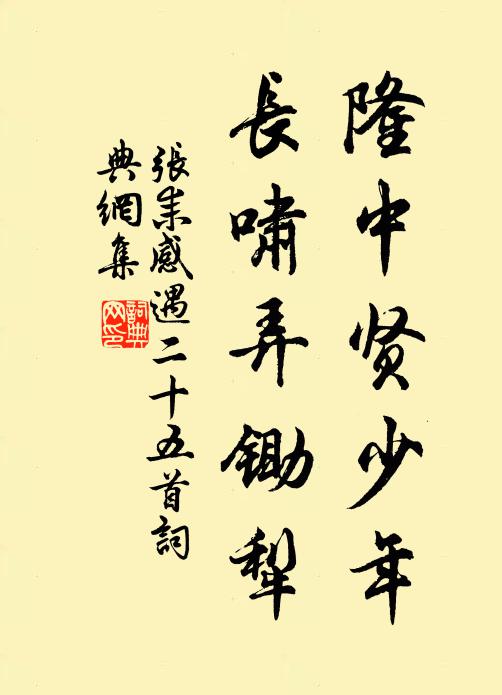 隆中贤少年
長嘯弄鋤犁
張耒感遇二十五首詞
典網集
詞典
网印